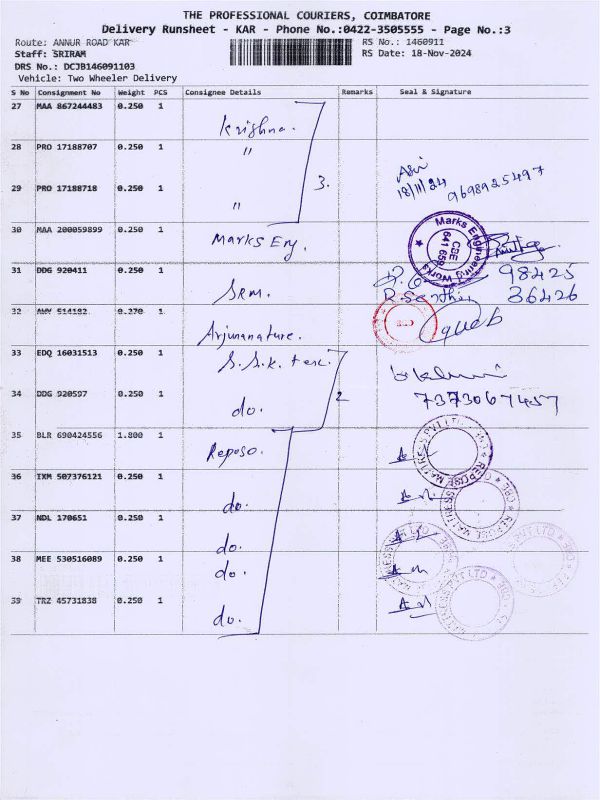 THE PROFESSIONAL COURIERS, COIMBATORE
Delivery Runsheet - KAR - Phone No.:0422-3505555 - Page No.:3
Route: ANNUR ROAD KAR
RS No.: 1460911
Staff: SRIRAM
RS Date: 18-Nov-2024
DRS No.: DCJB146091103
Vehicle: Two Wheeler Delivery
S No Consignment No Weight PCS Consignee Details Remarks Seal & Signature
27 MAA 867244483 0.250 1 Krishna.
28 PRO 17188707 0.250 1 "
29 PRO 17188718 0.250 1 " 3. 18/11/24 9698925497
30 MAA 200059899 0.250 1 Marks Eng. Marks Engineering Works CBE 641 659
31 DDG 920411 0.250 1 SRM. 98425
36426
32 AWV 514182 0.270 1 Arjunanature.
33 EDQ 16031513 0.250 1 S.S.K. tex.
34 DDG 920597 0.250 1 do. 2 7373067457
35 BLR 690424556 1.800 1 Reposo.
36 IXM 507376121 0.250 1 do.
37 NDL 170651 0.250 1 do.
38 MEE 530516089 0.250 1 do.
39 TRZ 45731838 0.250 1 do.